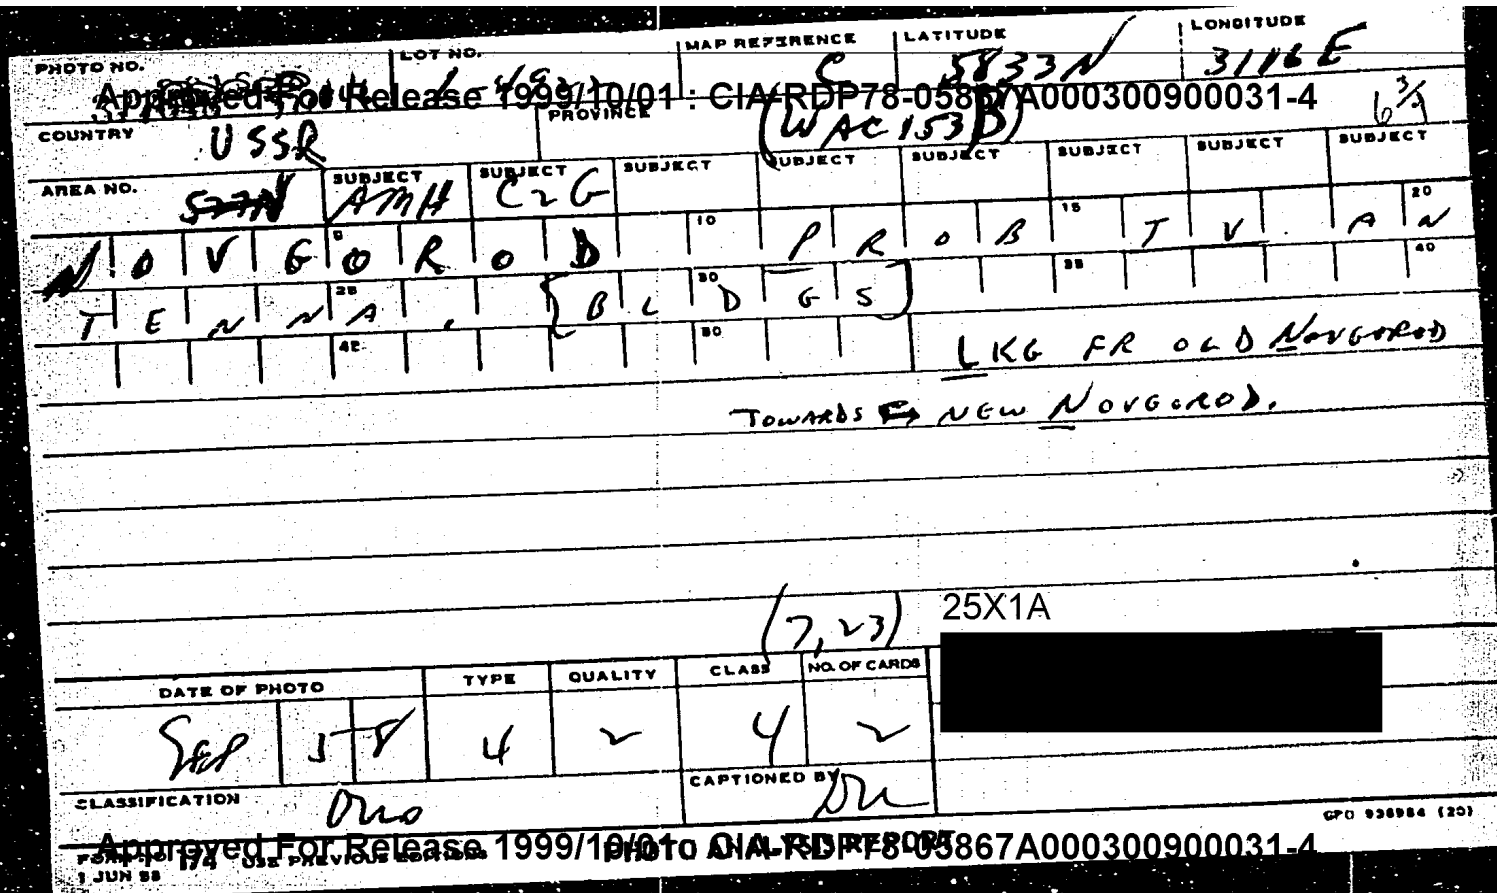 PHOTO NO. LOT NO. MAP REFERENCE C LATITUDE 5833N LONGITUDE 3116E
Approved For Release 1999/10/01 : CIA-RDP78-05867A000300900031-4
COUNTRY USSR PROVINCE (WAC 153D)
AREA NO. SUBJECT AMH SUBJECT C2G SUBJECT SUBJECT SUBJECT SUBJECT SUBJECT SUBJECT
NOVGOROD 10 PROB 15 TV. AN 20
TENNA, 25 [BLDGS] 30 35 40
45 50 LKG FR OLD NOVGOROD
TOWARDS NEW NOVGOROD.
(7,23) 25X1A
DATE OF PHOTO TYPE QUALITY CLASS NO. OF CARDS
SEP 58 4 2 4 2
CLASSIFICATION CAPTIONED BY
GPO 936984 (20)
Approved For Release 1999/10/01 : CIA-RDP78-05867A000300900031-4
FORM NO 174 USE PREVIOUS EDITIONS PHOTO ANALYSIS REPORT
1 JUN 58